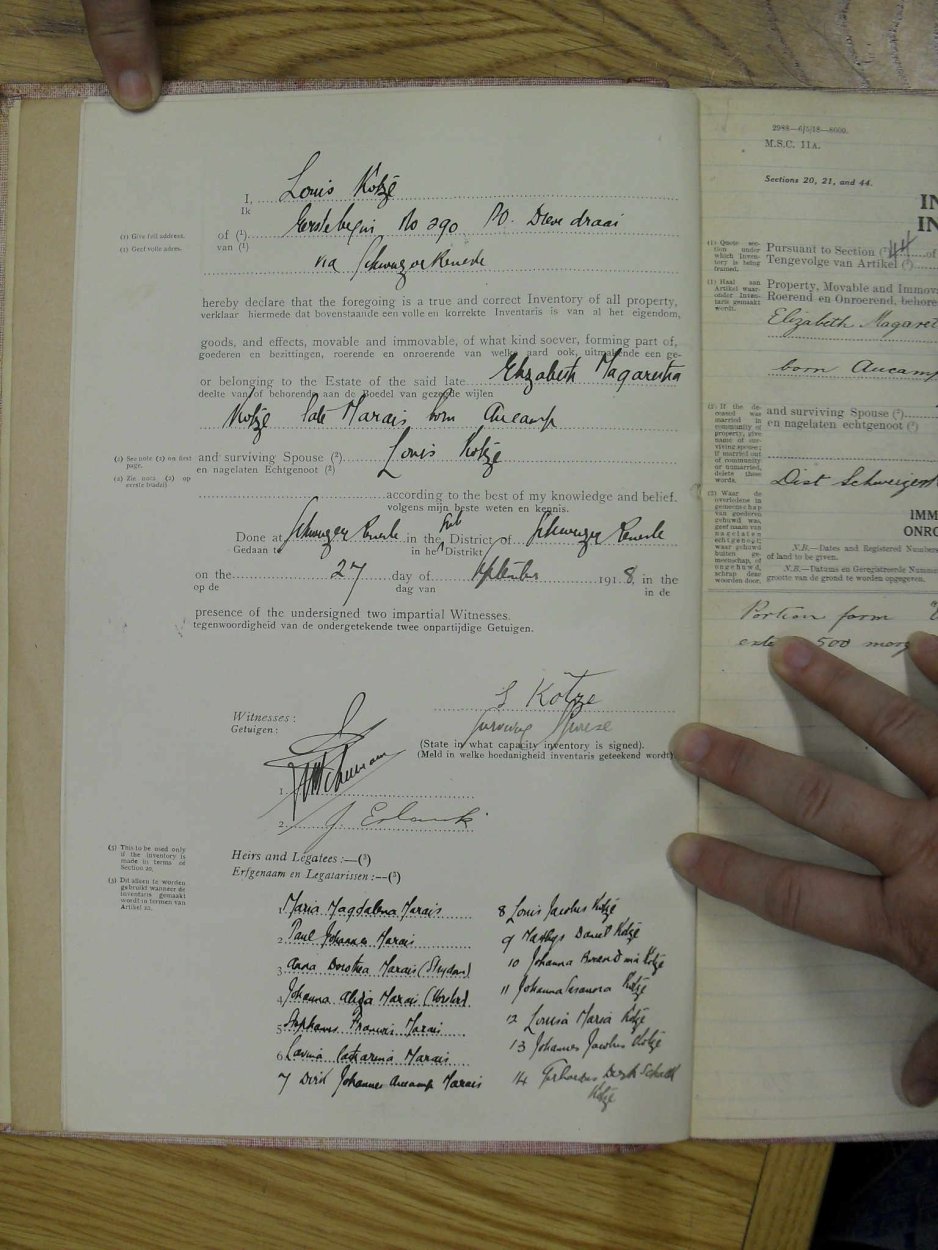 I, Louis Kotzé
Ik
(1) Give full address.
(1) Geef volle adres.
of (1) Eerstebegin No 290 PO. Drie draai
van (1)
via Schweizer Reneke
hereby declare that the foregoing is a true and correct Inventory of all property,
verklaar hiermede dat bovenstaande een volle en korrekte Inventaris is van al het eigendom,
goods, and effects, movable and immovable, of what kind soever, forming part of,
goederen en bezittingen, roerende en onroerende van welke aard ook, uitmakende een ge-
or belonging to the Estate of the said late Elizabeth Magaretha
deelte van/of behorende aan de Boedel van gezegde wijlen
Kotzé late Marais born Aucamp
(2) See note (2) on first page.
(2) Zie nota (2) op eerste bladzij
and surviving Spouse (2) Louis Kotzé
en nagelaten Echtgenoot (2)
according to the best of my knowledge and belief.
volgens mijn beste weten en kennis.
Done at Schweizer Reneke in the Sub District of Schweizer Reneke
Gedaan te in het Distrikt
on the 27 day of September 1918, in the
op de dag van in de
presence of the undersigned two impartial Witnesses.
tegenwoordigheid van de ondergetekende twee onpartijdige Getuigen.
L Kotze
Witnesses:
Getuigen:
Surviving Spouse
(State in what capacity inventory is signed).
(Meld in welke hoedanigheid inventaris geteekend wordt)
1.
2. J Erlank
(3) This to be used only
if the inventory is
made in terms of
Section 20.
(3) Dit alleen te worden
gebruikt wanneer de
inventaris gemaakt
wordt in termen van
Artikel 20.
Heirs and Legatees:—(3)
Erfgenaam en Legatarissen:—(3)
1. Maria Magdalena Marais
2. Paul Johannes Marais
3. Anna Dorothea Marais (Strydom)
4. Johanna Marais
5. Stephanus Francois Marais
6. Lavina Catharina Marais
7 Dirk Johannes Aucamp Marais
8 Louis Jacobus Kotzé
9 Mathys Daniel Kotzé
10 Johanna Kotzé
11 Johanna Kotzé
12 Louisa Maria Kotzé
13 Johannes Jacobus Kotzé
14 Gerhardus Derk Schalk
Kotzé
2988—6/5/18—8000.
M.S.C. 11A.
Sections 20, 21, and 44.
IN
IN
(1) Quote sec-
tion under
which Inven-
tory is being
framed.
Pursuant to Section (1) 44 of
Tengevolge van Artikel (1)
(1) Haal aan
Artikel waar-
onder Inven-
taris gemaakt
wordt.
Property, Movable and Immov
Roerend en Onroerend, behore
Elizabeth Magaret
born Aucamp
(2) If the de-
ceased was
married in
community of
property, give
name of sur-
viving spouse;
if married out
of community
or unmarried,
delete these
words.
and surviving Spouse (2)
en nagelaten echtgenoot (2)
Dist Schweizer
(2) Waar de
overledene in
gemeenschap
van goederen
gehuwd was,
geef naam van
nagelaten
echtgenoot;
waar gehuwd
buiten ge-
meenschap, of
ongehuwd,
schrap deze
woorden door.
IMM
ONRO
N.B.—Dates and Registered Numbers
of land to be given.
N.B.—Datums en Geregistreerde Nummers
grootte van de grond te worden opgegeven.
Portion farm
500 morg